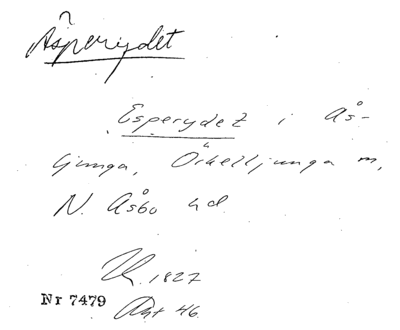 Äsperydet
Esperydet i Ås-
ljunga, Örkelljunga sn,
N. Åsbo hd
1827
Nr 7479
Akt 46